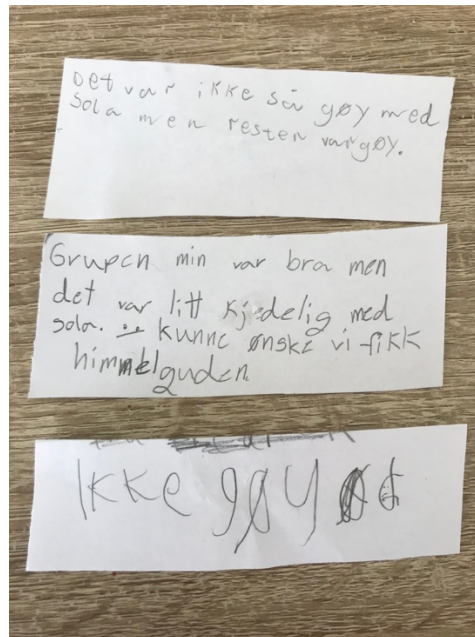 Det var ikke så gøy med
sola men resten var gøy.
Grupen min var bra men
det var litt kjedelig med
sola. kunne ønske vi fikk
himmelguden
Ikke gøy